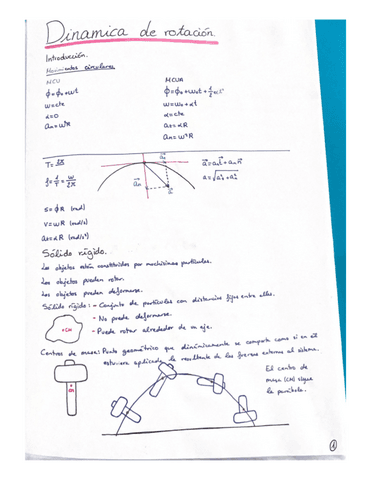 Dinamica de rotación.
Introducción.
Movimientos circulares
MCU
ϕ=ϕ₀+ωt
ω=cte
α=0
aₙ=ω²R
MCUA
ϕ=ϕ₀+ω₀t+½αt²
ω=ω₀+αt
α=cte
aₜ=αR
aₙ=ω²R
T=2π/ω
f=1/T=ω/2π
aₜ
aₙ
a
a=√aₜ²+aₙ²
s=ϕR (rad)
v=ωR (rad/s)
aₜ=αR (rad/s²)
Sólido rígido.
Los objetos están constituidos por muchísimas partículas.
Los objetos pueden rotar.
Los objetos pueden deformarse.
Sólido rígido: - Conjunto de partículas con distancias fijas entre ellas.
- No puede deformarse.
- Puede rotar alrededor de un eje.
CM
Centros de masa: Punto geométrico que dinámicamente se comporta como si en él
estuviera aplicada la resultante de las fuerzas externas al sistema.
CM
El centro de
masa (CM) sigue
la parábola.
1